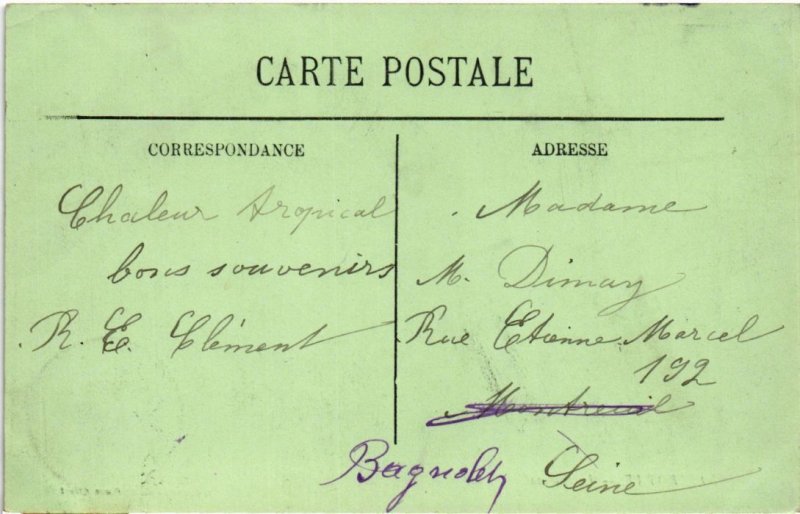 CARTE POSTALE
CORRESPONDANCE
Chaleur tropical
bons souvenirs
R. E. Clément
ADRESSE
Madame
M. Dimay
Rue Etienne Marcel
192
Montreuil
Bagnolet Seine